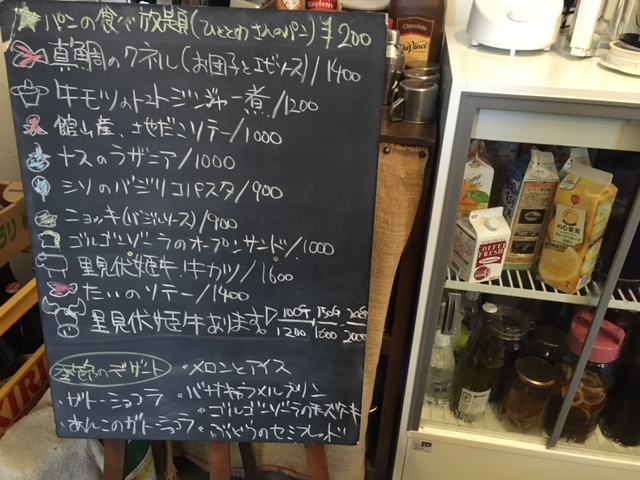 パンの食べ放題(ひとかわさんのパン)¥200
真鯛のクネル(お団子とエビソース)/1400
牛モツのトマトジンジャー煮/1200
館山産、地だこソテー/1000
ナスのラザニア/1000
ミソのバジリコパスタ/900
ニョッキ(バジルソース)/900
ゴルゴンゾーラのオープンサンド/1000
里見伏姫牛、牛カツ/1600
たいのソテー/1400
里見伏姫牛あります▷ 100G 1200 150G 1600 200G 2000
季節のデザート ・メロンとアイス
・ガトーショコラ ・バナナキャラメルプリン
・あんこのガトーショコラ ・ゴルゴンゾーラのチーズケーキ
・ぶどうのセミフレッド
Raspberry
Chocolate
DaVinci
COFFEE
FRESH
のむ果実
KIRIN